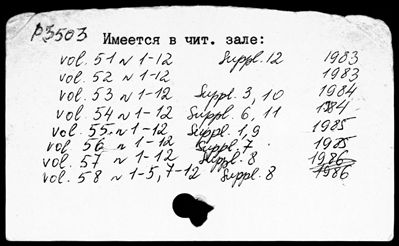 p3503 Имеется в чит. зале:
vol. 51 N 1-12 Suppl. 12 1983
vol. 52 N 1-12 1983
vol. 53 N 1-12 Suppl. 3, 10 1984
vol. 54 N 1-12 Suppl. 6, 11 1984
vol. 55 N 1-12 Suppl. 1,9 1985
vol. 56 N 1-12 Suppl. 7 1985
vol. 57 N 1-12 Suppl. 8 1986
vol. 58 N 1-5, 7-12 Suppl. 8 1986